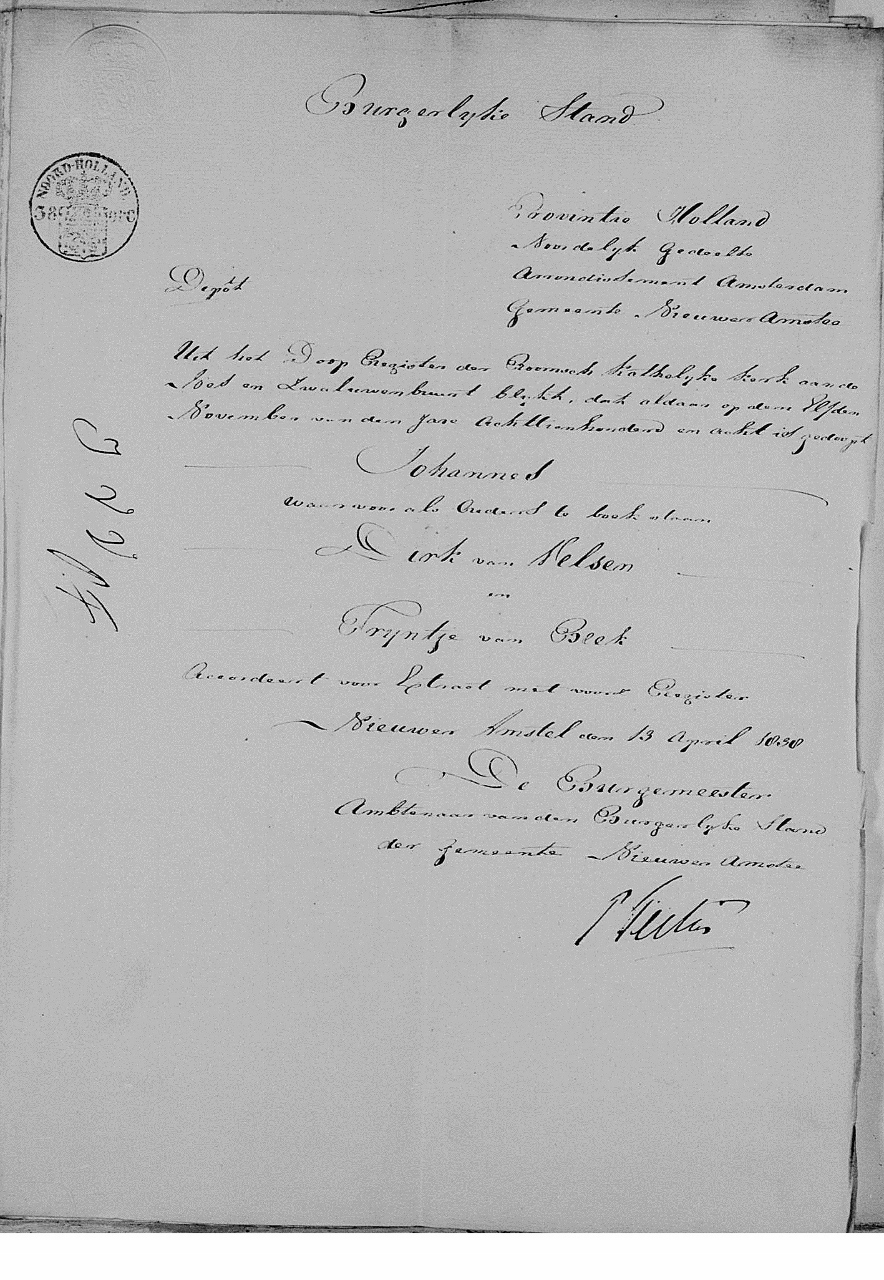 Burgerlyke Stand
NOORD-HOLLAND
Provintie Holland
Noordelyk Gedeelte
Arrondissement Amsterdam
Gemeente Nieuwer Amstel
Depôt
Uit het Doop Register der Roomsch Katholyke Kerk aan de
Nes en Zwaluwenbuurt blykt, dat aldaar op den Elfden
November van den Jare Achttienhonderd en acht is gedoopt
Johannes
waarvoor als Ouders te boek staan
Dirk van Velsen
en
Tryntje van Beek
Accordeert voor Extract met voors Register
Nieuwer Amstel den 13 April 1838
De Burgemeester
Ambtenaar van den Burgerlyke Stand
der Gemeente Nieuwer Amstel